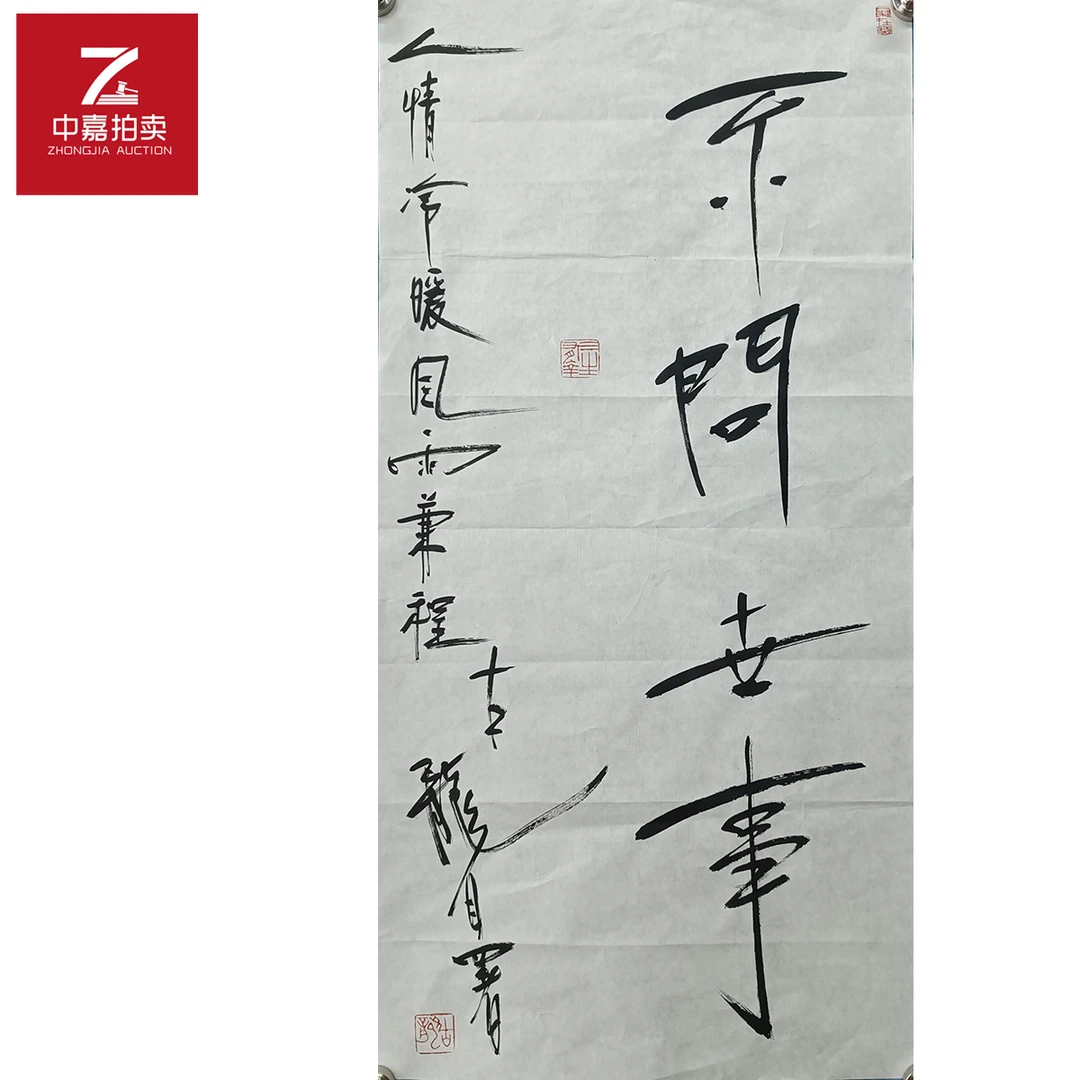 中嘉拍卖
ZHONGJIA AUCTION
不問世事
人情冷暖風雨兼程
古龍自署